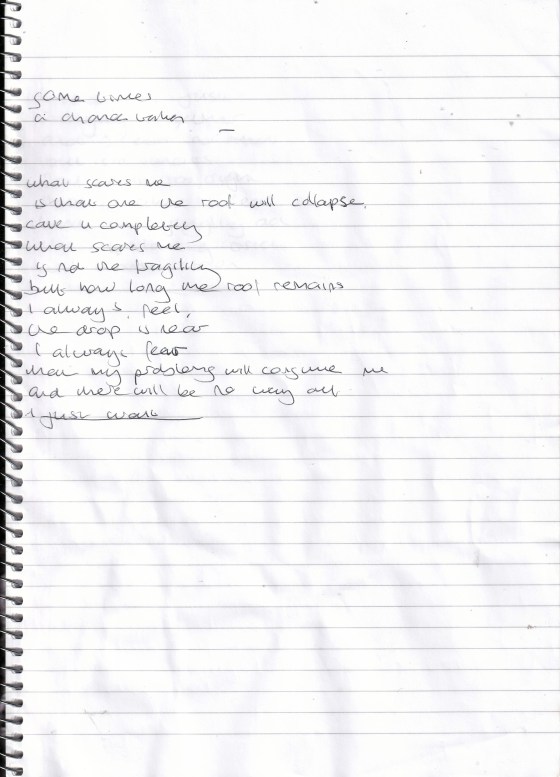 some times
a chance
what scares me
is that one the roof will collapse.
cave in completely
what scares me
is not the fragility
but how long the roof remains
I always, feel,
the drop is near
I always fear
that my problems will consume me
and there will be no way out
I just want